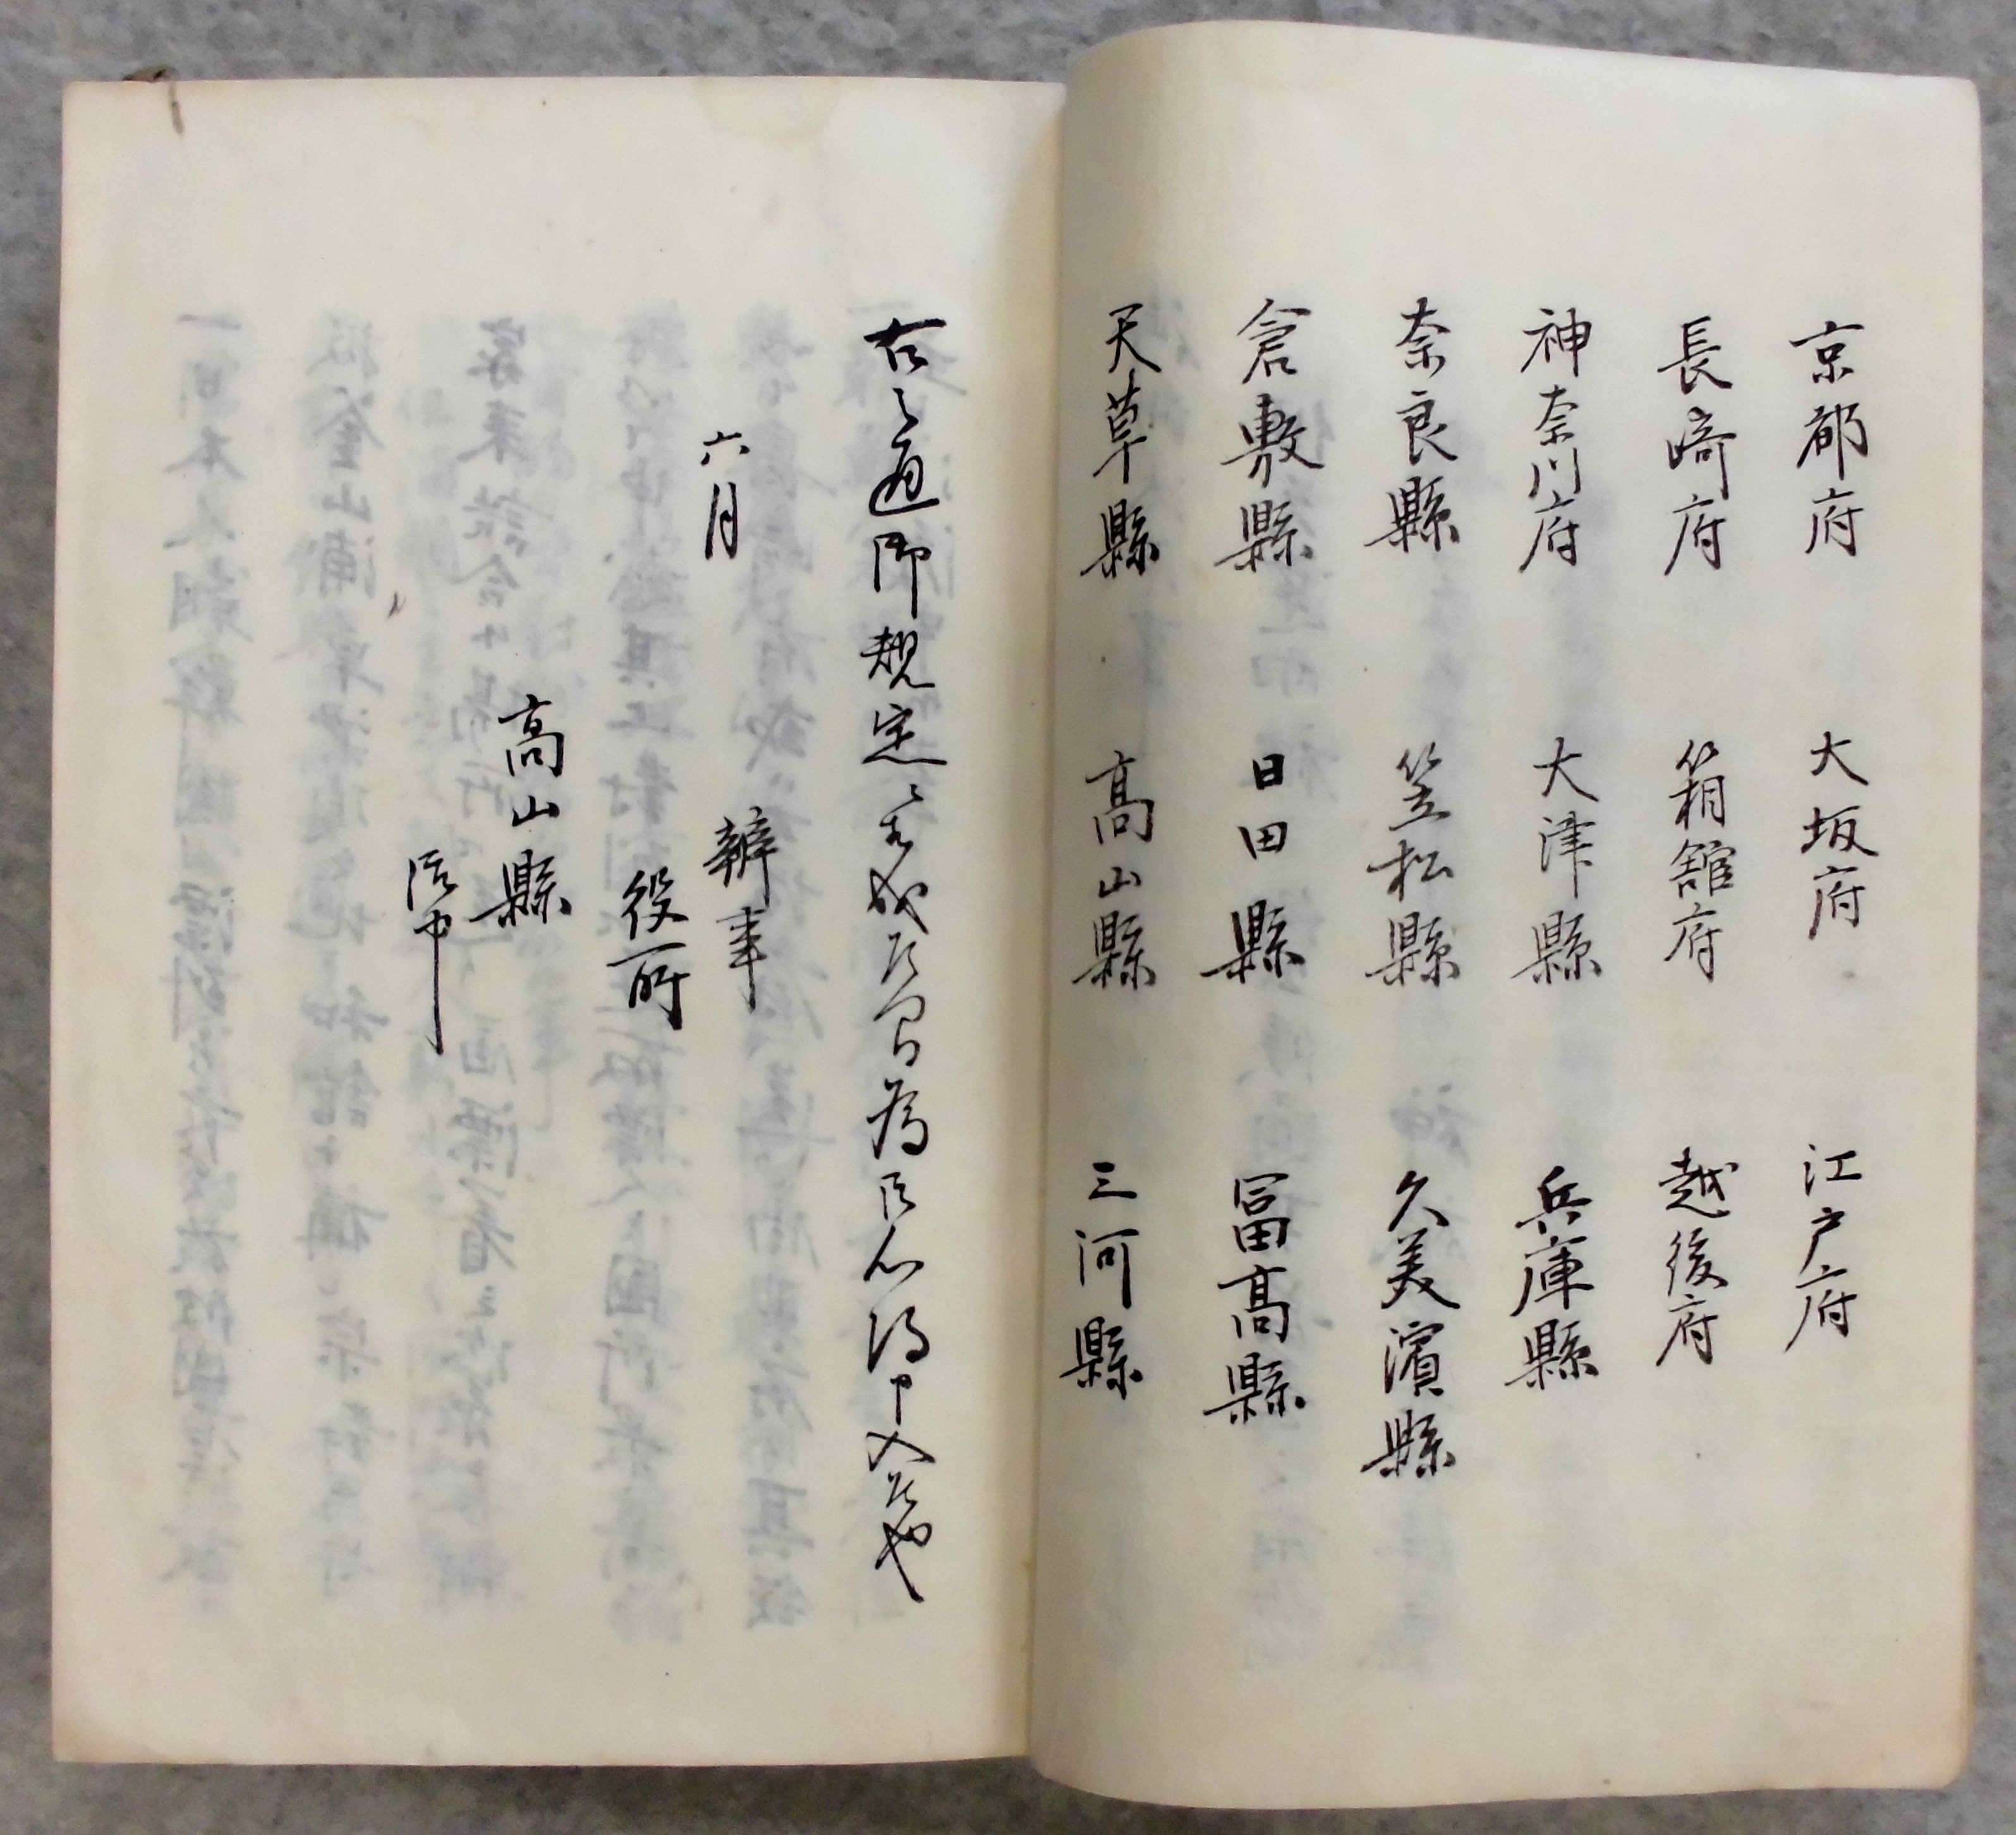 京都府 大坂府 江戸府
長崎府 箱館府 越後府
神奈川府 大津縣 兵庫縣
奈良縣 笠松縣 久美濱縣
倉敷縣 日田縣 冨高縣
天草縣 高山縣 三河縣
右之通御規定ニ相成候間為御心得申入候也
六月
辨事
役所
高山縣
御中